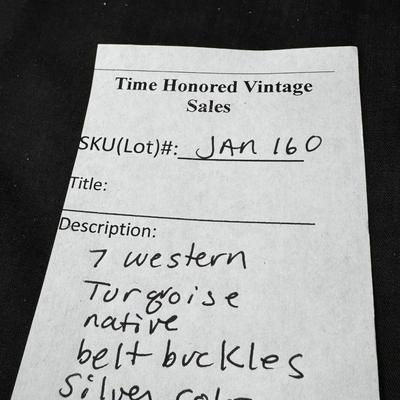 Time Honored Vintage
Sales
SKU(Lot)#: JAN 160
Title:
Description:
7 western
Turqoise
native
belt buckles
Silver